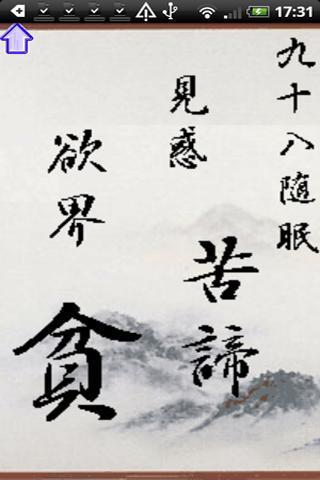 17:31
九十八随眠
見惑
苦諦
欲界
貪